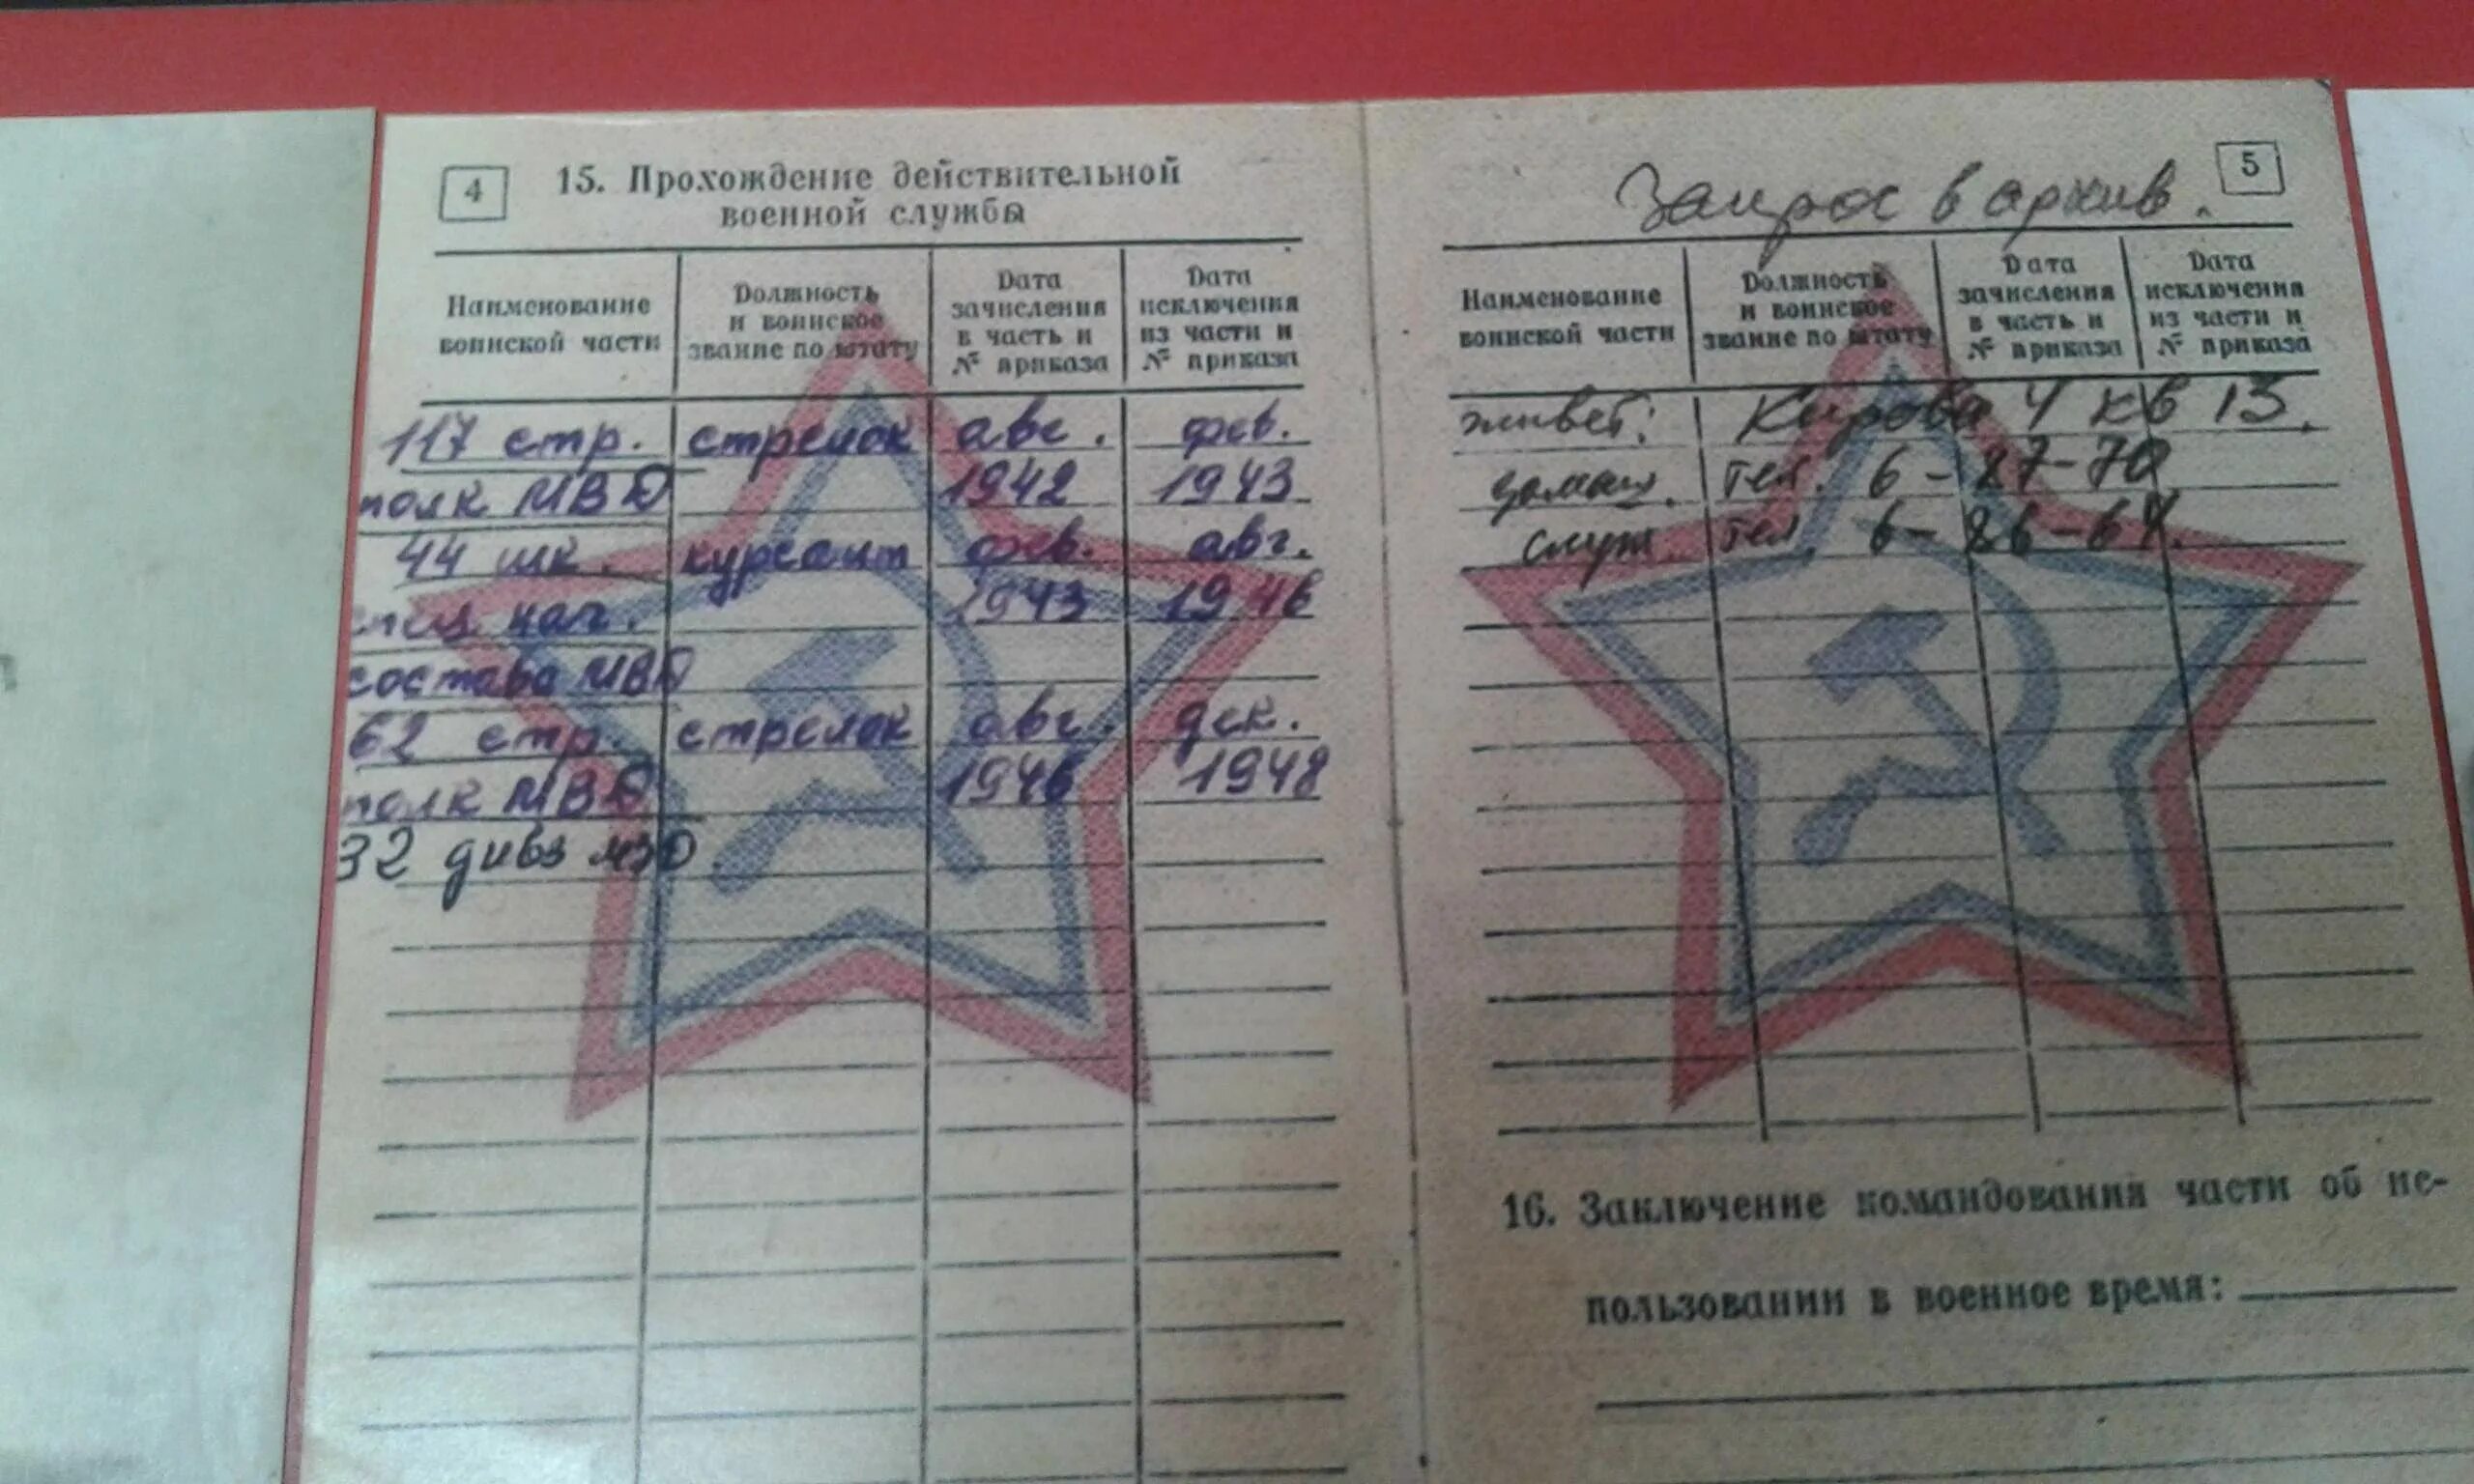 4
15. Прохождение действительной
военной службы
Наименование
воинской части
Должность
и воинское
звание по штату
Дата
зачисления
в часть и
№ приказа
Дата
исключения
из части и
№ приказа
117 стр. стрелок авг. фев.
полк МВД 1942 1943
44 шк. курсант фев. авг.
спец нач. 1943 1946
состава МВД
62 стр. стрелок авг. дек.
полк МВД 1946 1948
32 дивз
5
Запрос в архив.
Наименование
воинской части
Должность
и воинское
звание по штату
Дата
зачисления
в часть и
№ приказа
Дата
исключения
из части и
№ приказа
живет: Кирова 4 кв 13.
домаш. тел. 6-27-70
служ. тел. 6-26-64.
16. Заключение командования части об ис-
пользовании в военное время: